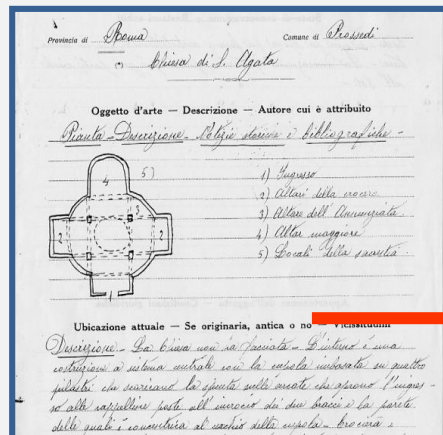 Provincia di Roma Comune di Prossedi
(*) Chiesa di S. Agata
Oggetto d'arte — Descrizione — Autore cui è attribuito
Pianta - Descrizione - Notizie storiche e bibliografiche -
5)
1) Ingresso
2) Altari della crociera
3) Altare dell'Annunziata
4) Altar maggiore
5) Locali della sacrestia
4
3
2 2
1
Ubicazione attuale — Se originaria, antica o no — Vicissitudini
Descrizione - La Chiesa non ha facciata - L'interno è una
costruzione a sistema centrale con la cupola imbasata su quattro
pilastri che scaricano la spinta nelle arcate che aprono l'ingres-
so alle cappelline poste all'incrocio dei due bracci e la parete
delle quali è concentrica al cerchio della cupola -